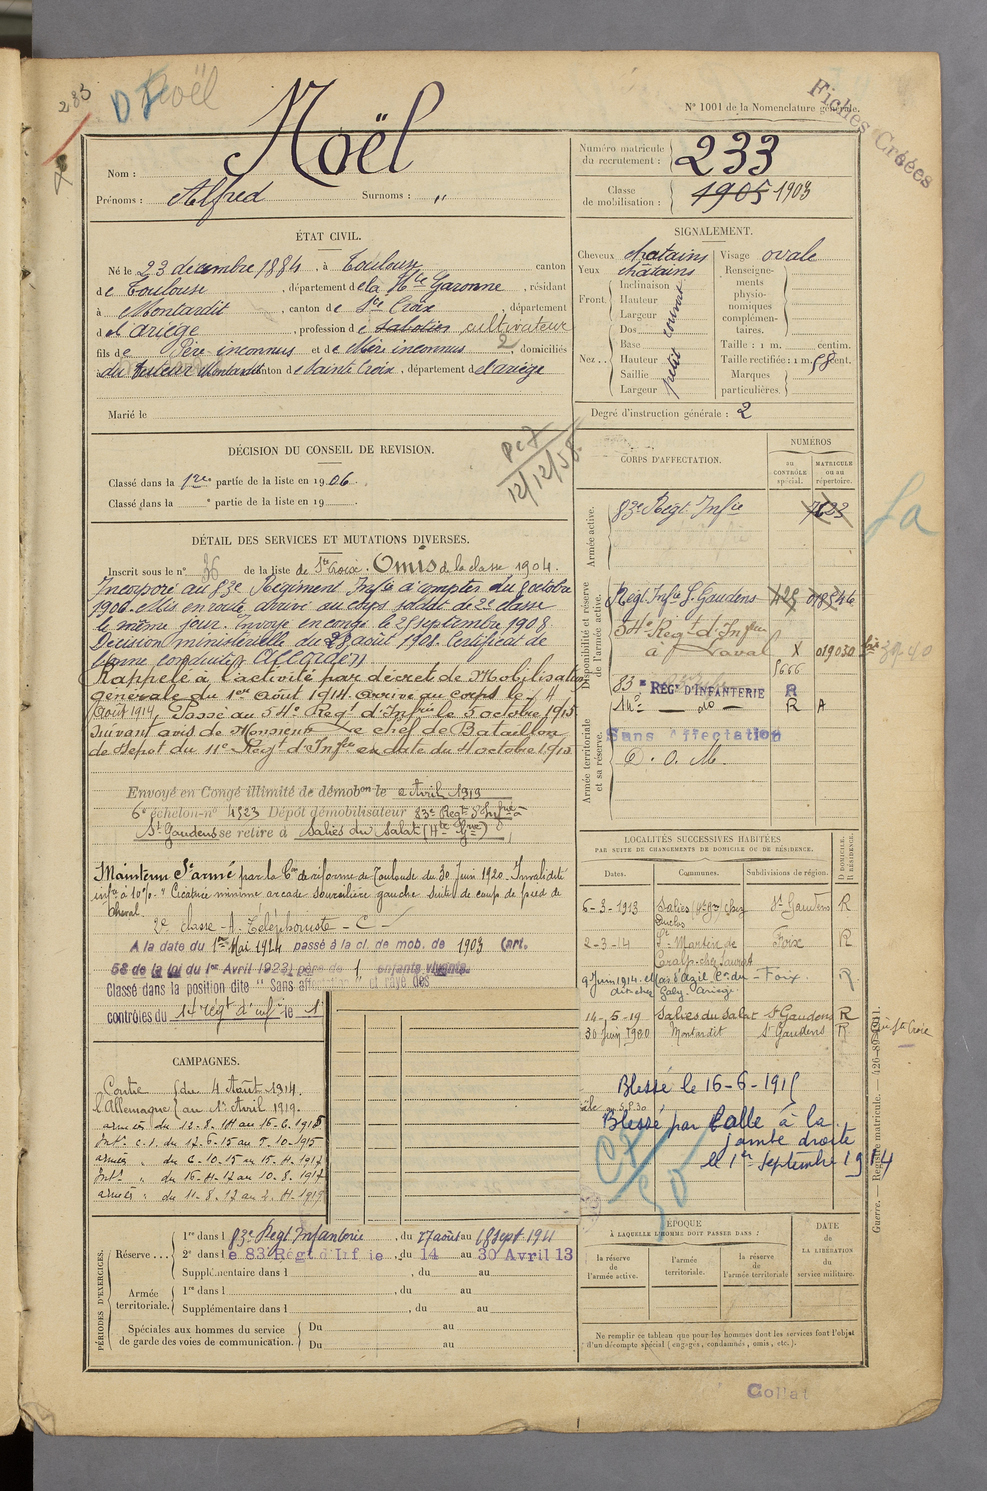 283
Noël
N° 1001 de la Nomenclature générale.
Fiches Créées
Nom : Noël
Prénoms : Alfred Surnoms : "
Numéro matricule du recrutement : 233
Classe de mobilisation : 1905 1903
ÉTAT CIVIL.
Né le 23 décembre 1884, à Toulouse canton
de Toulouse, département de la Hte Garonne, résidant
à Montardit, canton de Ste Croix, département
de l'ariège, profession de sabotier cultivateur
fils de Père inconnus et de Mère inconnus, domiciliés
à Montardit canton de Sainte Croix, département de l'ariège
Marié le
SIGNALEMENT.
Cheveux chatains
Yeux châtains
Front. Inclinaison Hauteur Largeur couvert
Nez .. Dos Base Hauteur Saillie Largeur petit
Visage ovale
Renseignements physionomiques complémentaires.
Taille : 1 m. centim.
Taille rectifiée : 1 m. 58 cent.
Marques particulières.
Degré d'instruction générale : 2
DÉCISION DU CONSEIL DE REVISION.
Classé dans la 1re partie de la liste en 1906.
Classé dans la e partie de la liste en 19
12/12/58
DÉTAIL DES SERVICES ET MUTATIONS DIVERSES.
Inscrit sous le n° 36 de la liste de Ste Croix. Omis de la classe 1904.
Incorporé au 83e Régiment Infie à compter du 8 octobre
1906. Mis en route, arrivé au corps soldat de 2e classe
le même jour. Envoyé en congé le 25 septembre 1908
Décision ministérielle du 28 août 1908. Certificat de
bonne conduite Accordé
Rappelé à l'activité par décret de Mobilisation
Générale du 1er Août 1914. Arrivé au corps le 4
Août 1914, Passé au 54e Régt d'Infrie le 5 octobre 1915
Suivant avis de Monsieur le chef de Bataillon
de Dépot du 11e Régt d'Infie en date du 4 octobre 1915
Envoyé en Congé illimité de démobon le 2 Avril 1919
6e échelon-n° 4523 Dépôt démobilisateur 83e Regt d'Infrie à
St Gaudens se retire à Salies du Salat (Hte Gne)
Maintenu St armé par la Con de réforme de Toulouse du 30 Juin 1920. Invalidité
infre à 10%. " Cicatrice minime arcade sourcilière gauche suite de coup de pied de
cheval.
2e classe - A. Téléphoniste - C -
A la date du 1er Mai 1924 passé à la cl. de mob. de 1903 (art.
58 de la loi du 1er Avril 1923) père de 1 enfants vivants.
Classé dans la position dite "Sans affectation" et rayé des
contrôles du 14e régt d'infie le 1
CORPS D'AFFECTATION.
NUMÉROS
au CONTRÔLE spécial.
MATRICULE ou au répertoire.
Armée active.
83e Régt Infie 7623
Disponibilité et réserve de l'armée active.
Régt Infie St Gaudens 425 018546
54e Regt d'Infrie
à Laval X 019030
8666
83e RÉGt D'INFANTERIE R
14e do R A
Armée territoriale et sa réserve.
Sans affectation
D. O. M.
39-40
LOCALITÉS SUCCESSIVES HABITÉES
PAR SUITE DE CHANGEMENTS DE DOMICILE OU DE RÉSIDENCE.
D DOMICILE. R RÉSIDENCE.
Dates. Communes. Subdivisions de région.
6-3-1913 Salies (Hte Gne) chez Duclos St Gaudens R
2-3-14 St Martin de Caralp chez Foix R
9 Juin 1914 Mas d'Azil Foix R
14-5-19 Salies du Salat St Gaudens R
30 Juin 1920 Montardit St Gaudens R
Blessé le 16-6-1915
Blessé par balle à la
jambe droite
le 1er Septembre 1914
CAMPAGNES.
Contre du 4 Août 1914
l'Allemagne au 1er Avril 1919.
armées du 12-8-14 au 16-6-1915
Intr c.s. du 17-6-15 au 5-10-1915
armées " du 6-10-15 au 15-4-1917
Intr " du 16-4-17 au 10-8-1917
armées " du 11-8-17 au 2-4-1919
PÉRIODES D'EXERCICES.
Réserve ... 1re dans le 83e Régt Infanterie, du 27 août au 18 Sept 1911
2e dans le 83e Régt d'Infie du 14 au 30 Avril 13
Supplémentaire dans l , du au
Armée territoriale. 1re dans l , du au
Supplémentaire dans l , du au
Spéciales aux hommes du service de garde des voies de communication. Du au
Du au
ÉPOQUE
À LAQUELLE L'HOMME DOIT PASSER DANS :
la réserve de l'armée active.
l'armée territoriale.
la réserve de l'armée territoriale
DATE DE LA LIBÉRATION du service militaire.
Ne remplir ce tableau que pour les hommes dont les services font l'objet
d'un décompte spécial (engagés, condamnés, omis, etc.).
Guerre. — Registre matricule. — 426-89-1911.
Collat